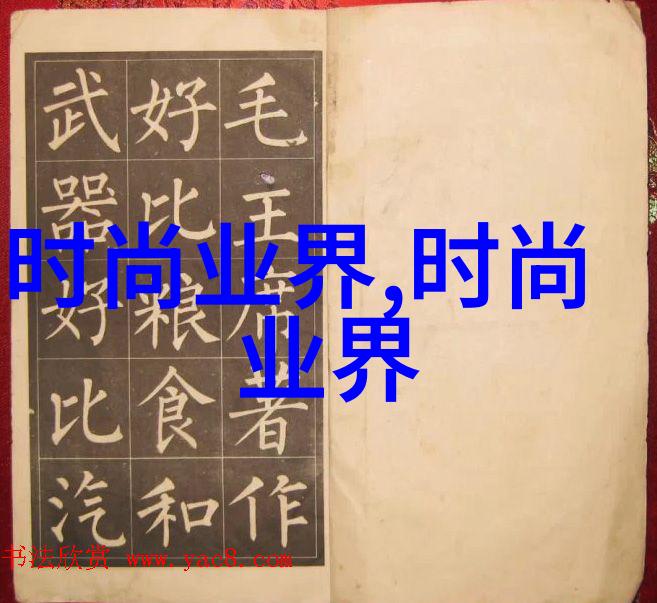 毛主席著作
好比粮食和
武器好比汽
时尚业界,时尚
业界
书法欣赏 www.yac8.com